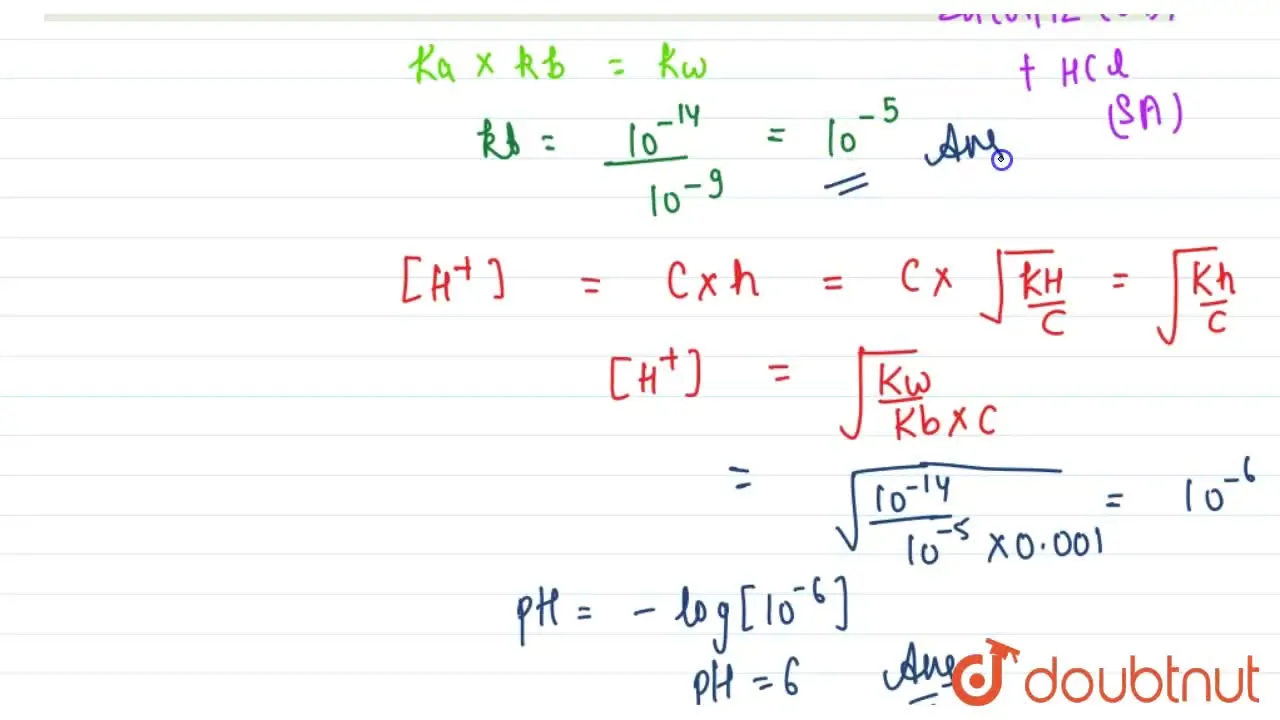 Ka × kb = Kw
+ HCl
(SA)
kb = 10⁻¹⁴ / 10⁻⁹ = 10⁻⁵ Ans
[H⁺] = C × h = C × √(KH / C) = √(Kh / C)
[H⁺] = √(Kw / Kb × C)
= √(10⁻¹⁴ / 10⁻⁵ × 0.001) = 10⁻⁶
pH = - log [10⁻⁶]
pH = 6 Ans
doubtnut